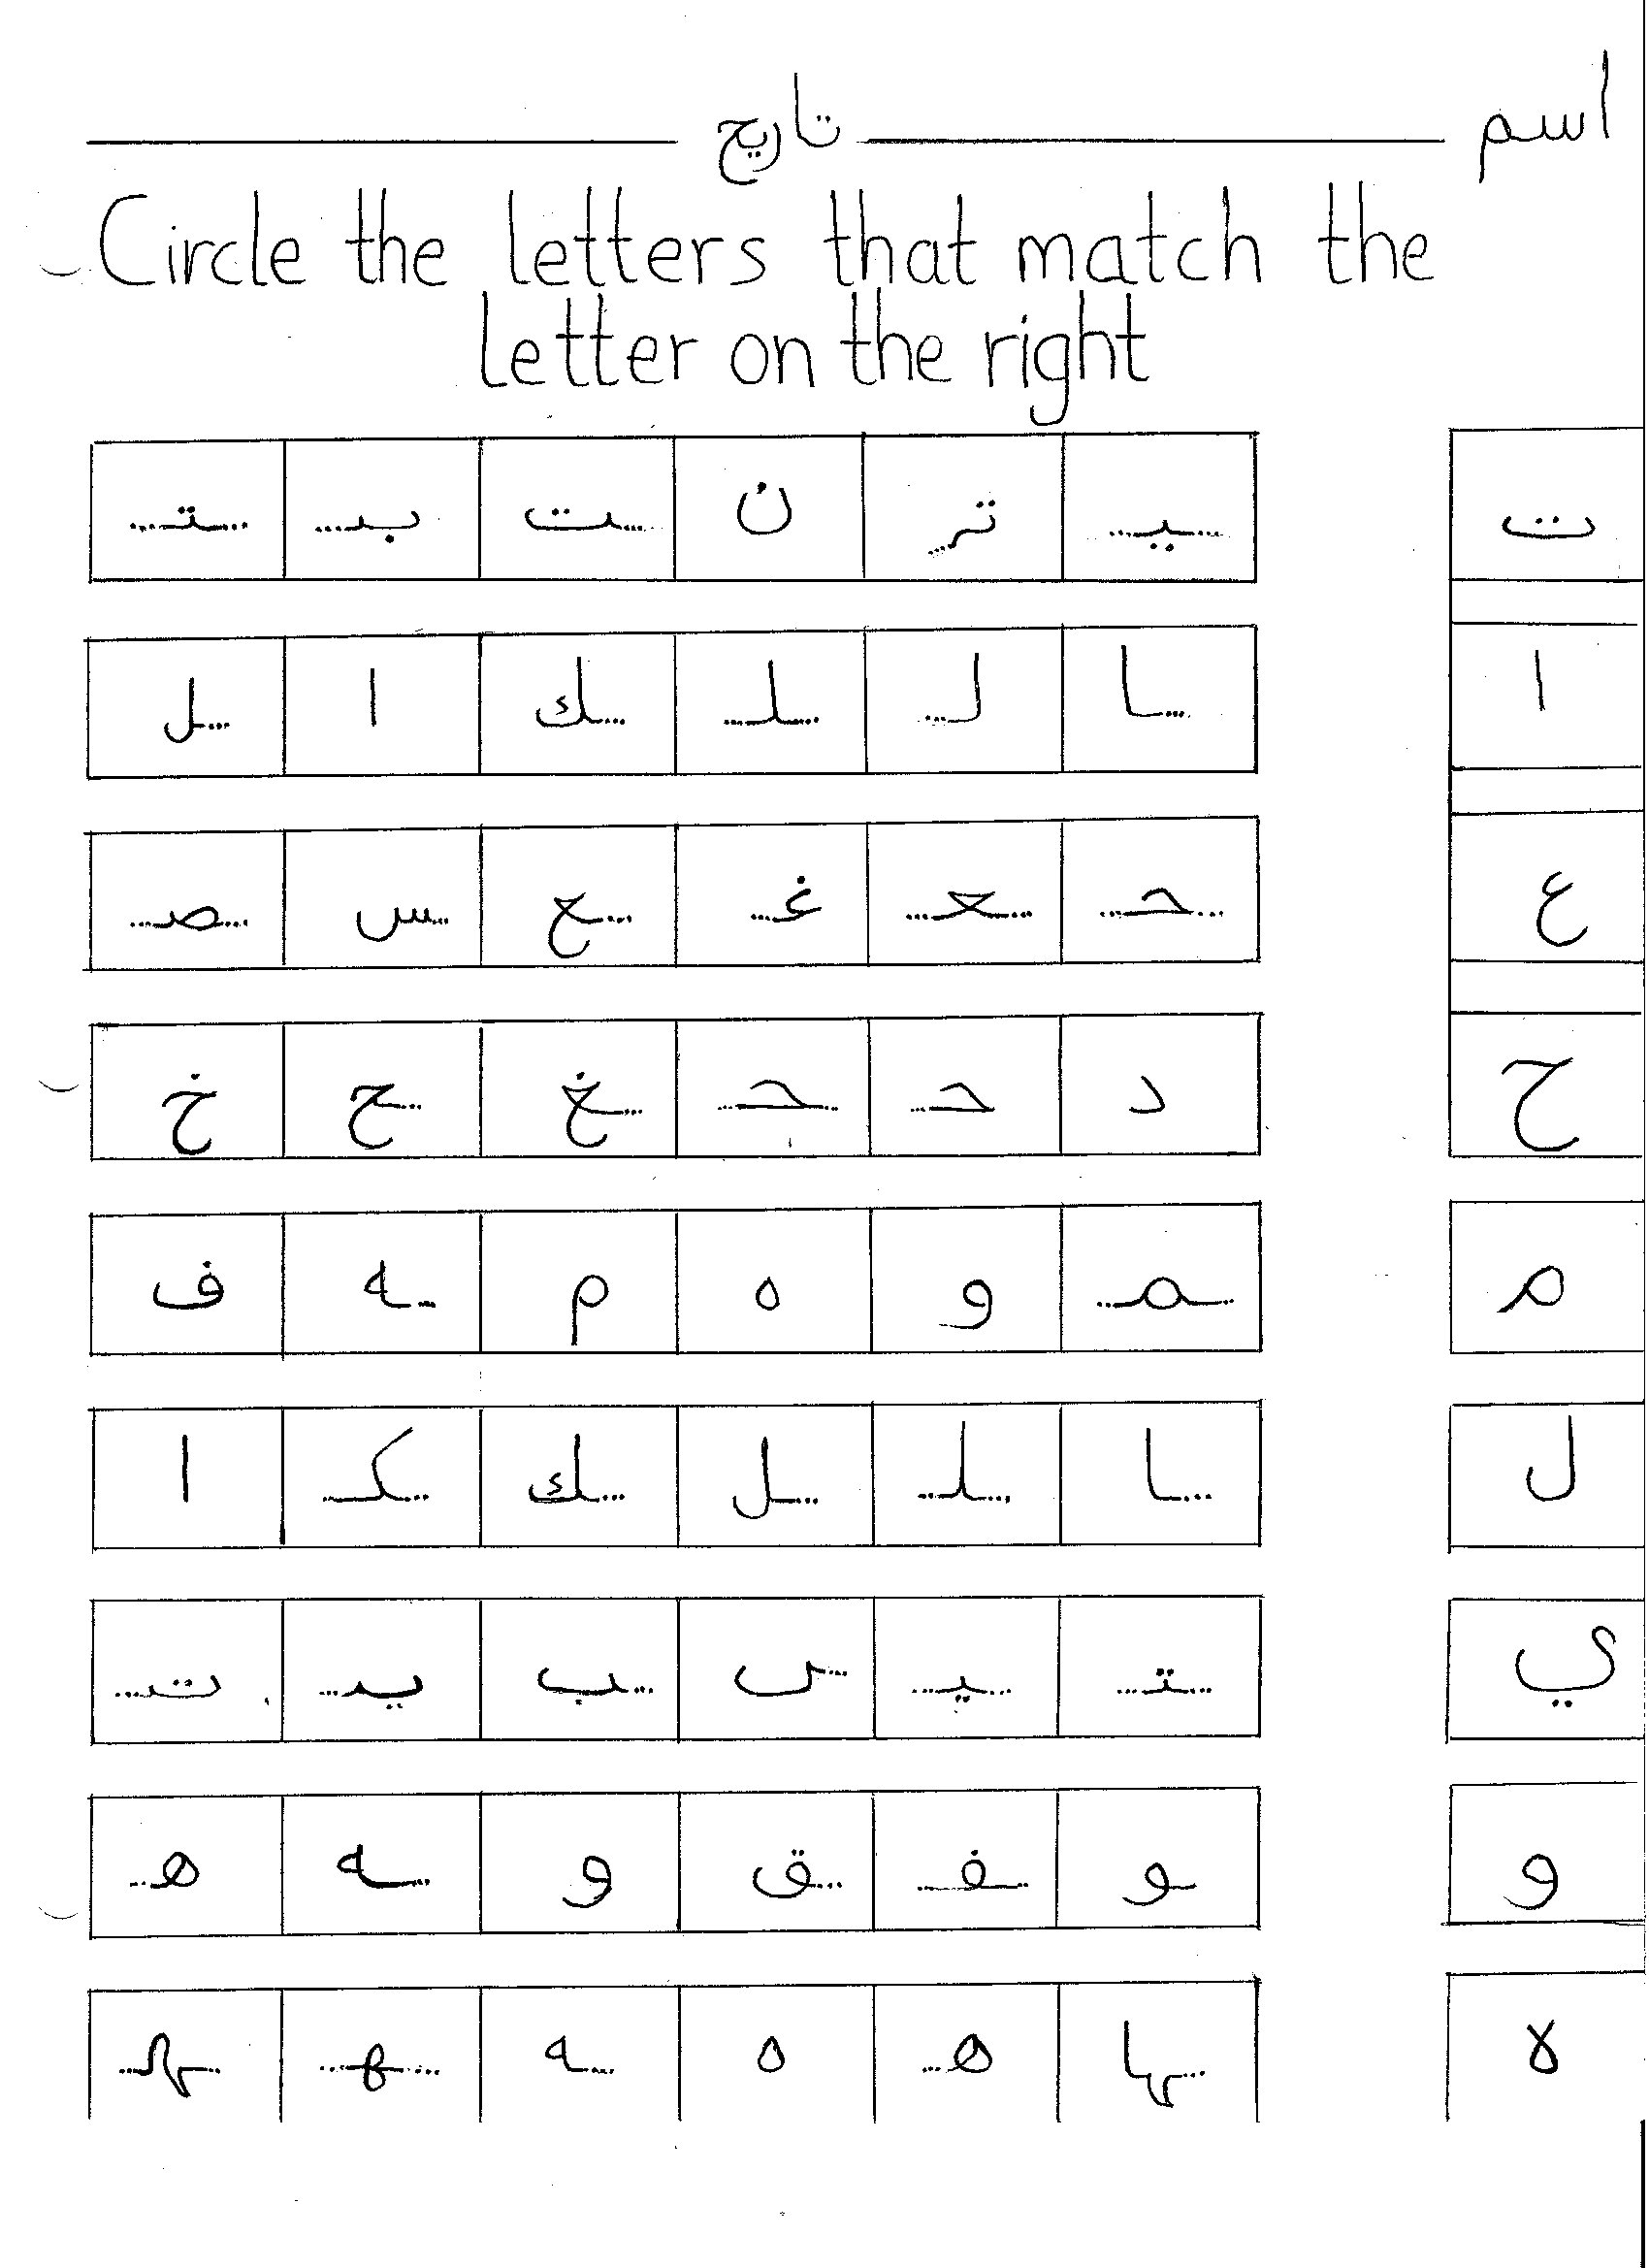 اسم تاريح
Circle the letters that match the
letter on the right
ت ـيـ تر ن ـت بـ ـتـ
ا ـا لـ ـلـ ـك ا ـل
ع ـحـ ـعـ غـ ـع س ـصـ
ح د حـ ـحـ ـغ ـح خ
م ـمـ و ه م ـه ف
ل ـا ـلـ ـل ـك ـكـ ا
ي ـتـ ـيـ ـى ـب يـ تـ
و ـو ـفـ ـق و ـه هـ
ه ـها هـ ه ـه ـهـ ـهـ